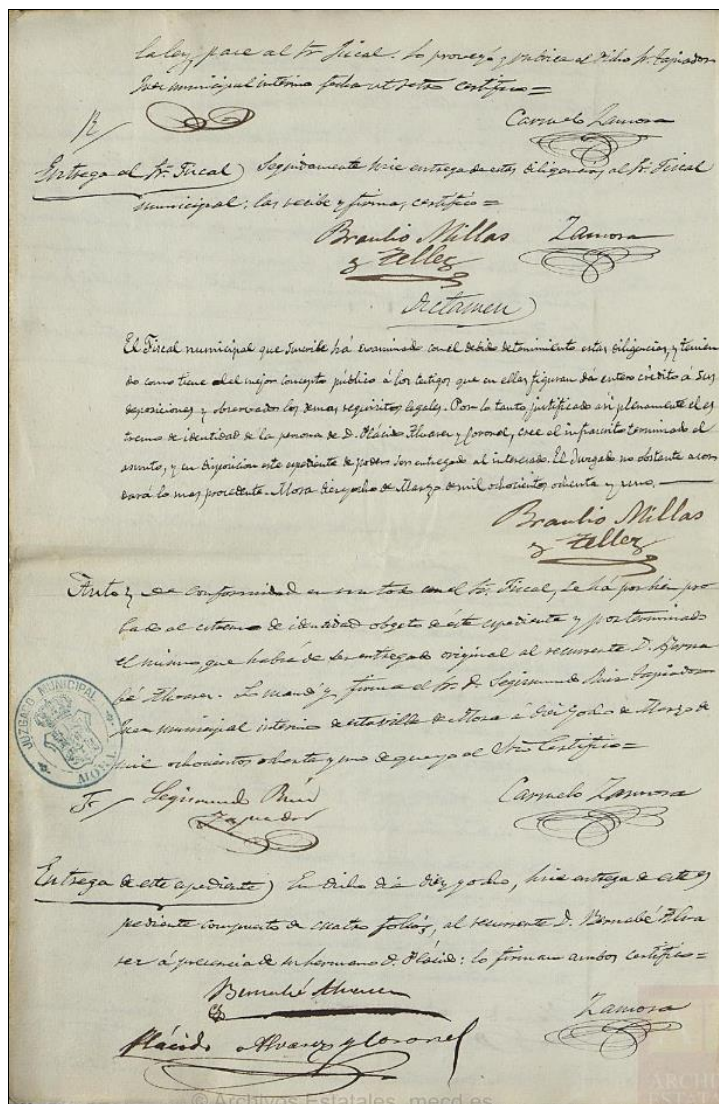 la ley, pase al Sr. Fiscal. Lo proveyó y rubrica el dicho Sr. Zapiador
Juez municipal interino fecha ut retro certifico=
R/
Carmelo Zamora
Entrega al Sr. Fiscal) Seguidamente hice entrega de estas diligencias, al Sr. Fiscal
municipal: las recibe y firma, certifico=
Braulio Millas Zamora
y Tellez
Dictamen)
El Fiscal municipal que suscribe há examinado con el debido detenimiento estas diligencias, y tenien
do como tiene del mejor concepto público á los testigos que en ellas figuran dá entero crédito á sus
deposiciones y observados los demas requisitos legales. Por lo tanto, justificado asi plenamente el es
tremo de identidad de la persona de D. Plácido Alvarez y Coronel, cree el infrascrito terminado el
asunto, y en disposicion este espediente de poder ser entregado al interesado. El Juzgado no obstante acor
dará lo mas procedente. Mora diez y ocho de Marzo de mil ochocientos ochenta y uno.
Braulio Millas
y Tellez
Auto) De conformidad en un todo con el Sr. Fiscal, se há por bien pro
bado el estremo de identidad objeto de éste espediente y por terminado
el mismo que habrá de ser entregado original al recurrente D. Berna
bé Alvarez. Lo mandó y firma el Sr. D. Segismundo Ruiz Zapiador
Juez municipal interino de esta villa de Mora á diez y ocho de Marzo de
mil ochocientos ochenta y uno de que yo el Srio Certifico=
JUZGADO MUNICIPAL
MORA
F/ Segismundo Ruiz Carmelo Zamora
Zapiador
Entrega de este espediente) En dicho dia diez y ocho, hice entrega de este es
pediente compuesto de cuatro folios, al recurrente D. Bernabé Alva
rez á presencia de su hermano D. Plácido: lo firman ambos certifico=
Bernabé Alvarez
Zamora
Plácido Alvarez y Coronel
ARCHI
ESTATA
© Archivos Estatales, mecd.es